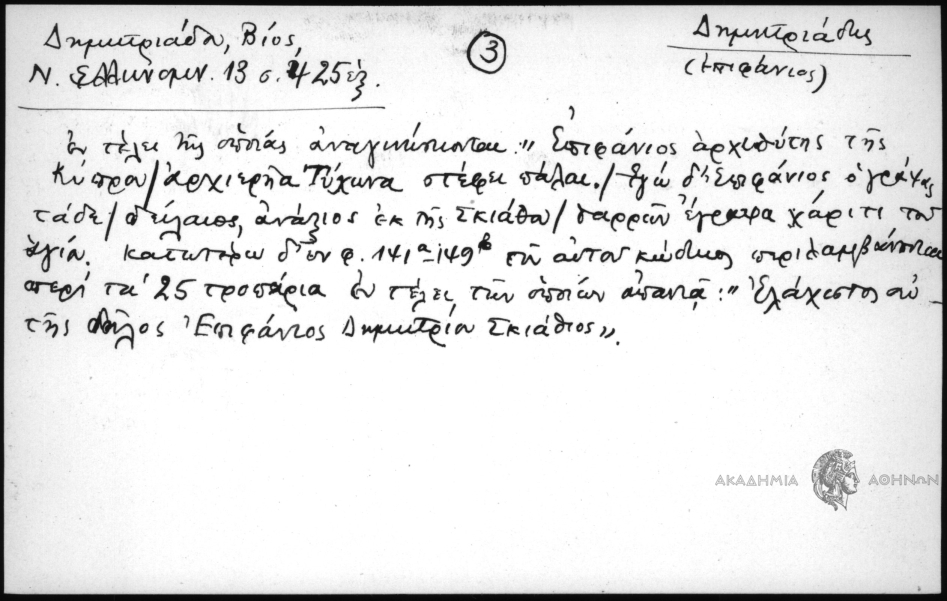 Δημητριάδη, Βίος,
Ν. Ἑλληνομν. 13 σ. 425 ἑξ.
③
Δημητριάδης
(Ἐπιφάνιος)
ἐν τέλει τῆς ὁποίας ἀναγινώσκονται: "Ἐπιφάνιος ἀρχιθύτης τῆς
Κύπρου/ἀρχιερῆα Τύχωνα στέφει πάλαι./Ἐγὼ δ' Ἐπιφάνιος ὁ γράψας
τάδε/ὁ δείλαιος, ἀνάξιος ἐκ τῆς Σκιάθου/θαρρῶν ἔγραψα χάριτι τοῦ
Ἁγίου. κατωτέρω δ' ἐν φ. 141α-149β τοῦ αὐτοῦ κώδικος περιλαμβάνονται
περὶ τὰ 25 τροπάρια ἐν τέλει τῶν ὁποίων ἀπαντᾷ: "Ἐλάχιστος οὐ-
τῆς δῆλος Ἐπιφάνιος Δημητρίου Σκιάθιος".
ΑΚΑΔΗΜΙΑ ΑΘΗΝΩΝ